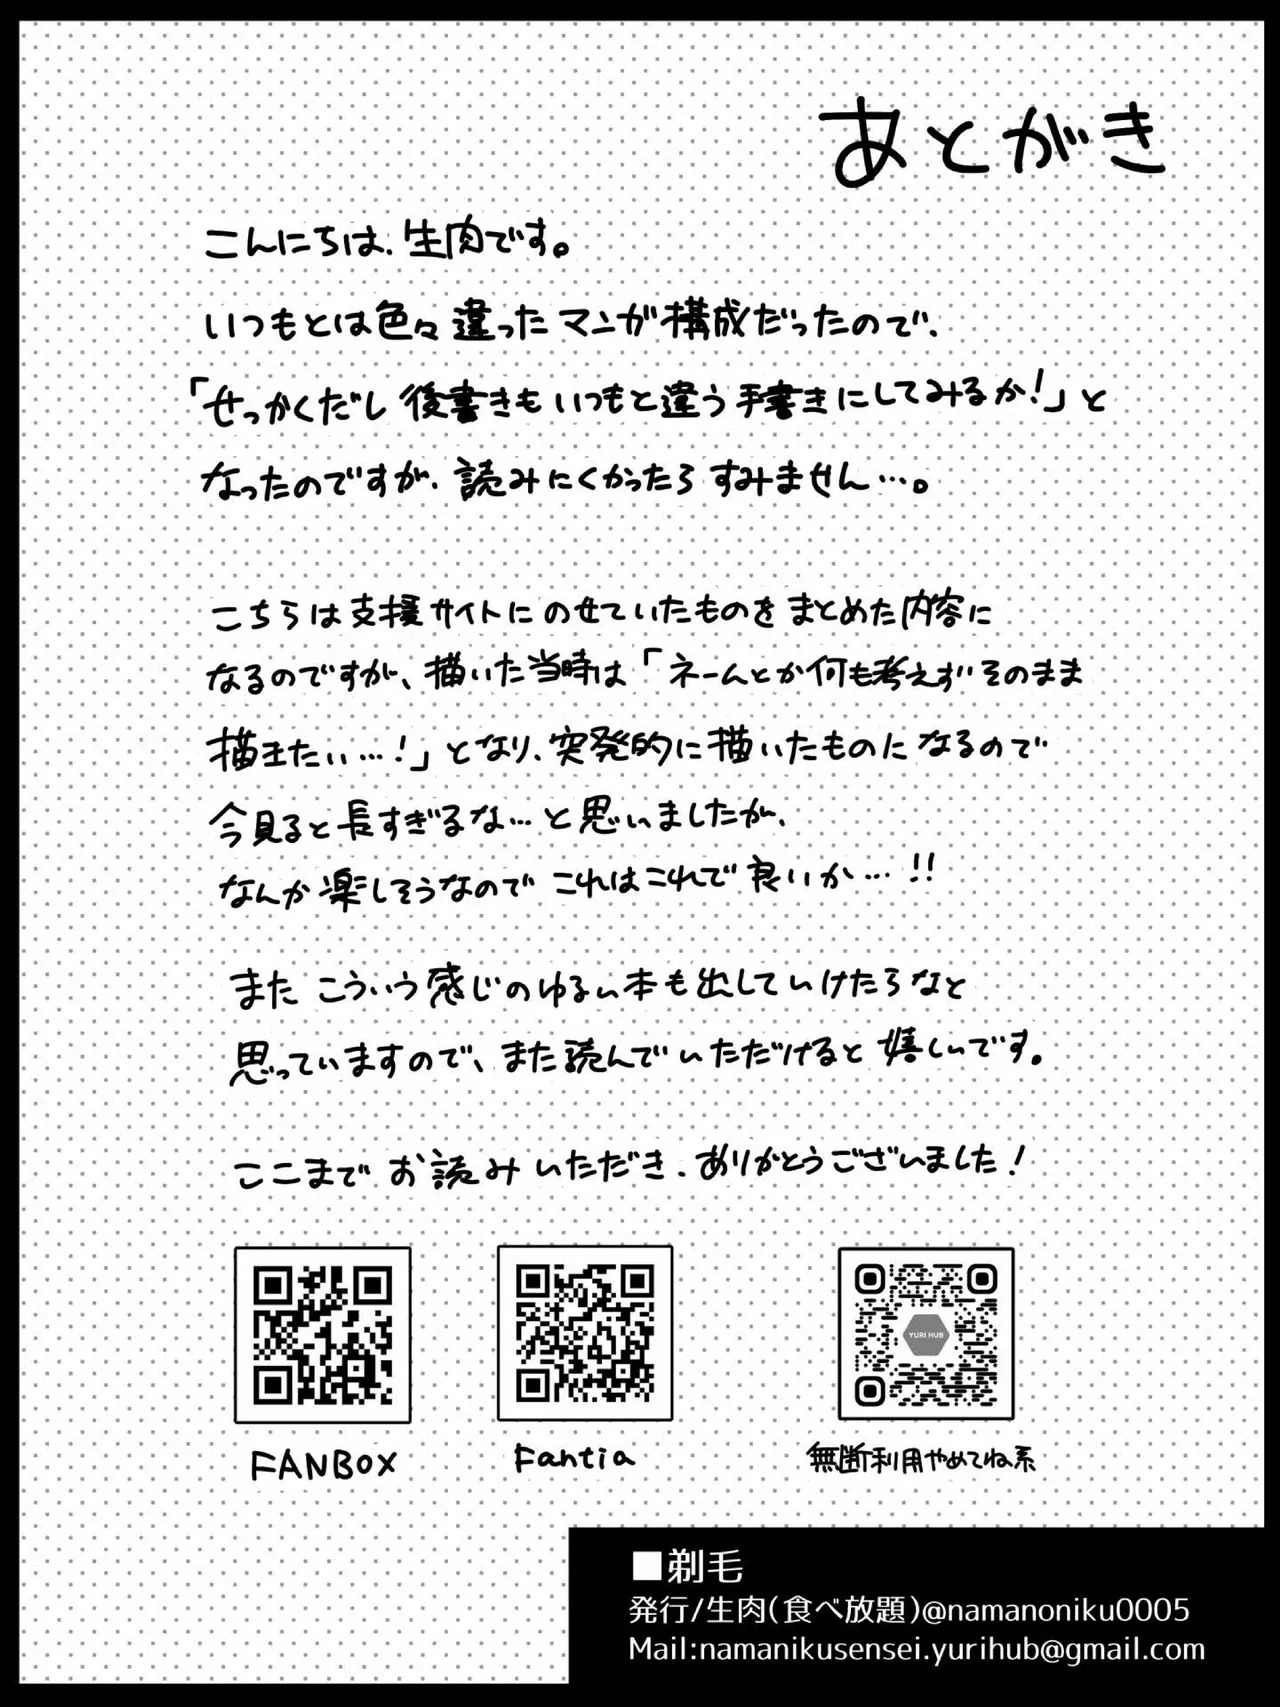 あとがき
こんにちは、生肉です。
いつもとは色々違ったマンガ構成だったので、
「せっかくだし後書きもいつもと違う手書きにしてみるか!」と
なったのですが、読みにくかったらすみません…。
こちらは支援サイトにのせていたものをまとめた内容に
なるのですが、描いた当時は「ネームとか何も考えずそのまま
描きたい…!」となり、突発的に描いたものになるので
今見ると長すぎるな…と思いましたが、
なんか楽しそうなのでこれはこれで良いか…!!
またこういう感じのゆるい本も出していけたらなと
思っていますので、また読んでいただけると嬉しいです。
ここまでお読みいただき、ありがとうございました!
YURI HUB
FANBOX Fantia 無断利用やめてね系
■剃毛
発行/生肉(食べ放題)@namanoniku0005
Mail:namanikusensei.yurihub@gmail.com